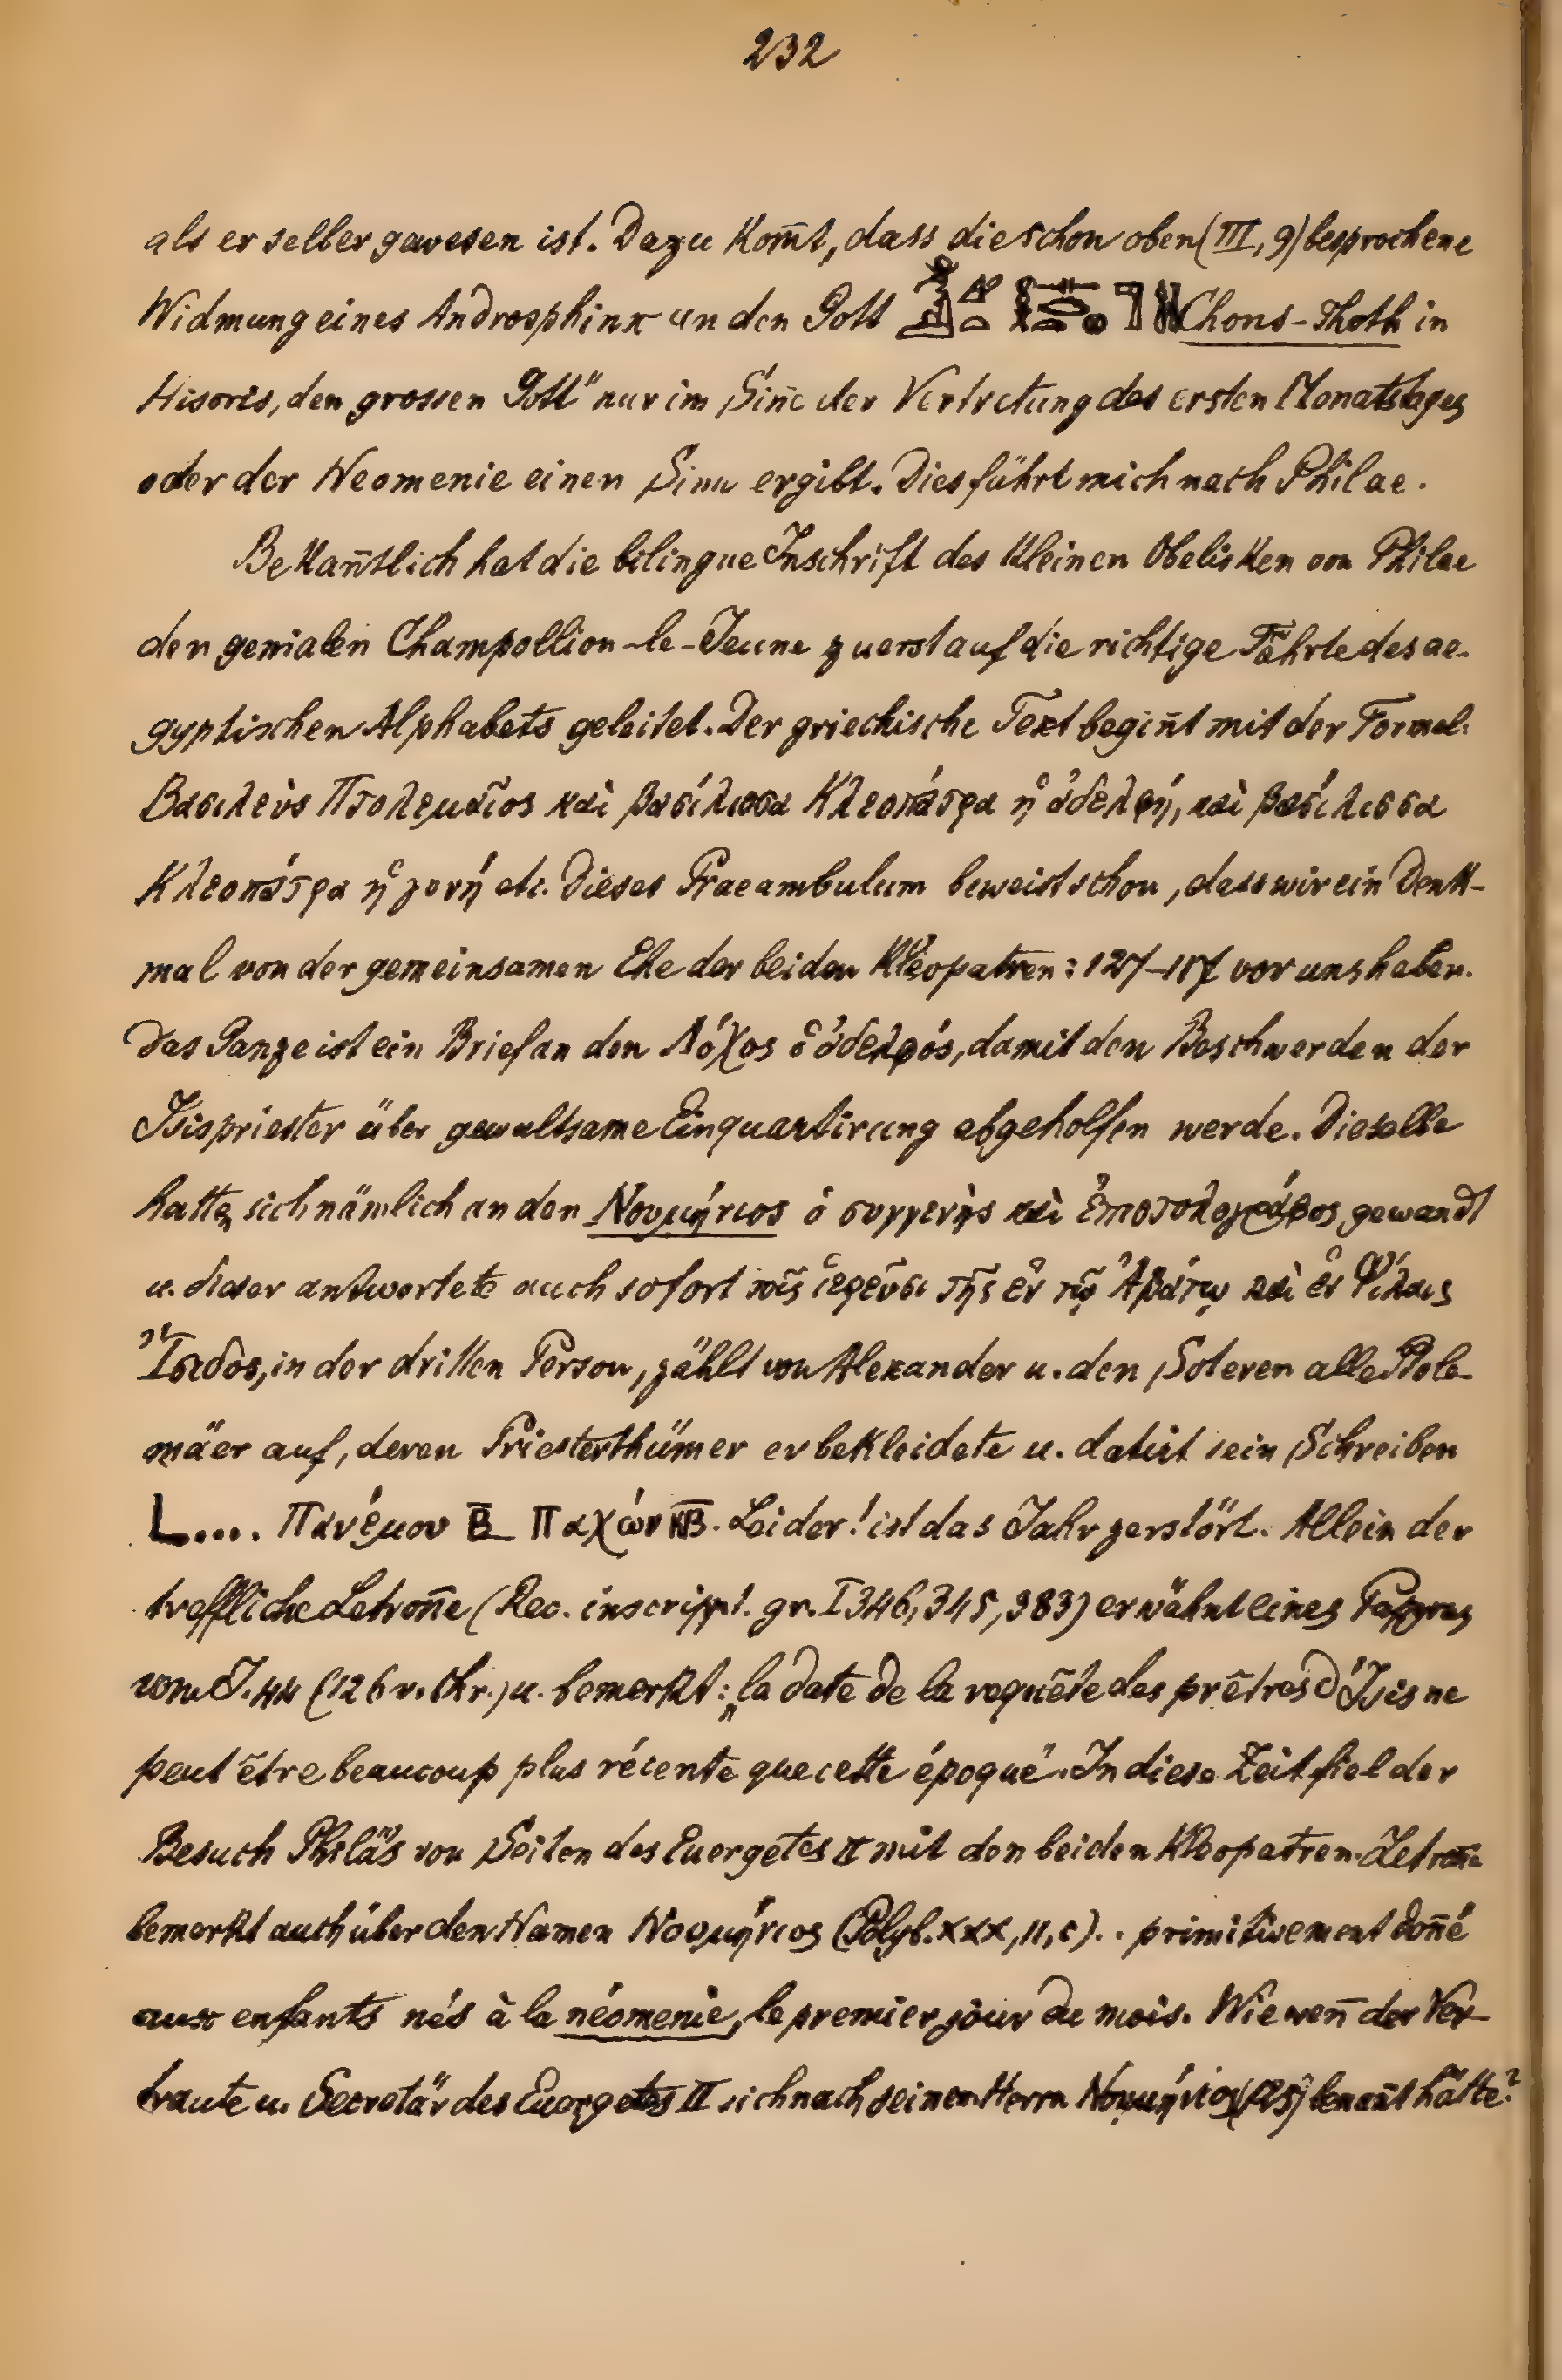 232
als er selber gewesen ist. Dazu kom̄t, dass die schon oben (III, 9) besprochene
Widmung eines Androsphinx an den Gott Chons-Thoth in
Hisoris, den grossen Gott" nur im Sin̄e der Vertretung des ersten Monatstages
oder der Neomenie einen Sinn ergibt. Dies führt mich nach Philae.
Bekan̄tlich hat die bilingue Inschrift des kleinen Obelisken von Philae
den genialen Champollion-le-Jeune zuerst auf die richtige Fährte des ae-
gyptischen Alphabets geleitet. Der griechische Text begin̄t mit der Formel:
Βασιλεὺς Πτολεμαῖος καὶ βασίλισσα Κλεοπάτρα ἡ ἀδελφή, καὶ βασίλισσα
Κλεοπάτρα ἡ γονή etc. Dieses Praeambulum beweist schon, dass wir ein Denk-
mal von der gemeinsamen Ehe der beiden Kleopatren: 127–117 vor uns haben.
Das Ganze ist ein Brief an den Λόχος ὁ ἀδελφός, damit den Beschwerden der
Isispriester über gewaltsame Einquartirung abgeholfen werde. Dieselbe
hatte sich nämlich an den Νουμήνιος ὁ συγγενὴς καὶ ἐπιστολογράφος gewandt
u. dieser antwortete auch sofort τοῖς ἱερεῦσι τῆς ἐν τῷ Ἀβάτῳ καὶ ἐν Φίλαις
Ἴσιδος, in der dritten Person, zählt von Alexander u. den Soteren alle Ptole-
mäer auf, deren Priesterthümer er bekleidete u. datirt sein Schreiben
L.... Πανέμου Β Παχὼν ΚΒ. Leider! ist das Jahr zerstört. Allein der
treffliche Letron̄e (Rec. inscrippt. gr. I 346, 345, 383) erwähnt eines Papyrus
vom J. 44 (126 v. Chr.) u. bemerkt: „la date de la requête des prêtres d'Isis ne
peut être beaucoup plus récente que cette époque". In diese Zeit fiel der
Besuch Philä's von Seiten des Euergetes II mit den beiden Kleopatren. Letron̄e
bemerkt auch über den Namen Νουμήνιος (Polyb. XXX, 11, c).. primitivement don̄é
aux enfants nés à la néomenie, le premier jour du mois. Wie wen̄ der Ver-
traute u. Secretär des Euergetes II sich nach seinem Herrn Νουμήνιος benan̄t hätte?